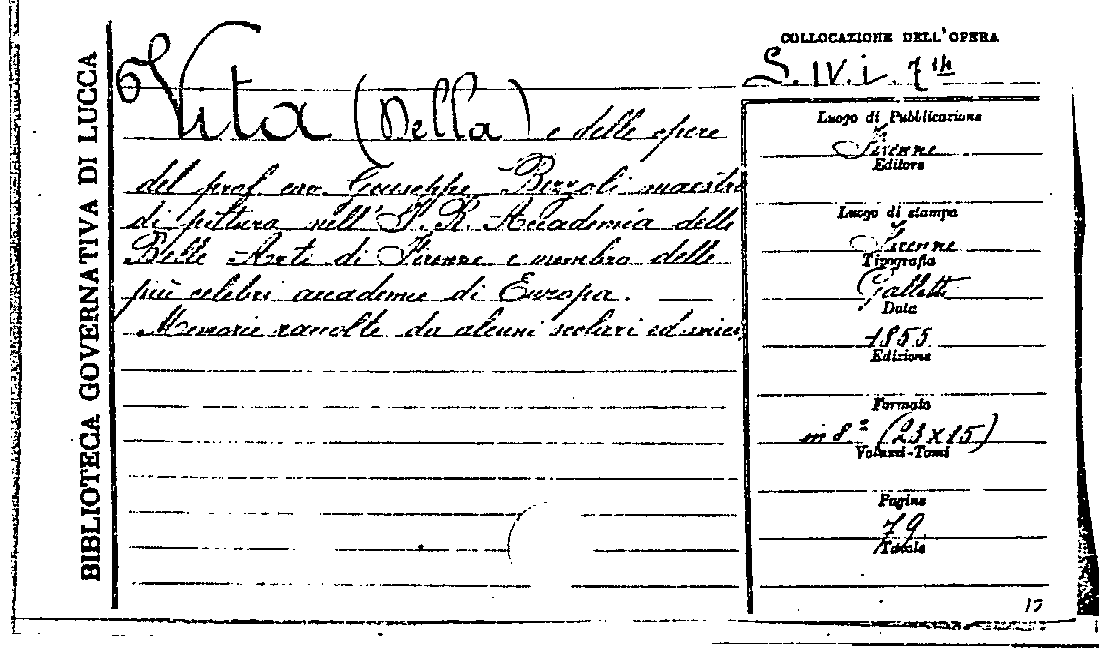 BIBLIOTECA GOVERNATIVA DI LUCCA
Vita (Della) e delle opere
del prof. cav. Giuseppe Bezzoli maestro
di pittura nell'I. R. Accademia delle
Belle Arti di Firenze e membro delle
più celebri accademie di Europa.
Memorie raccolte da alcuni scolari ed amici
COLLOCAZIONE DELL'OPERA
S. IV. i. 7
Luogo di Pubblicazione
Firenne
Editore
Luogo di stampa
Firenne
Tipografia
Galletti
Data
1855
Edizione
Formato
in 8º (23x15)
Volumi-Tomi
Pagine
79
Tavole